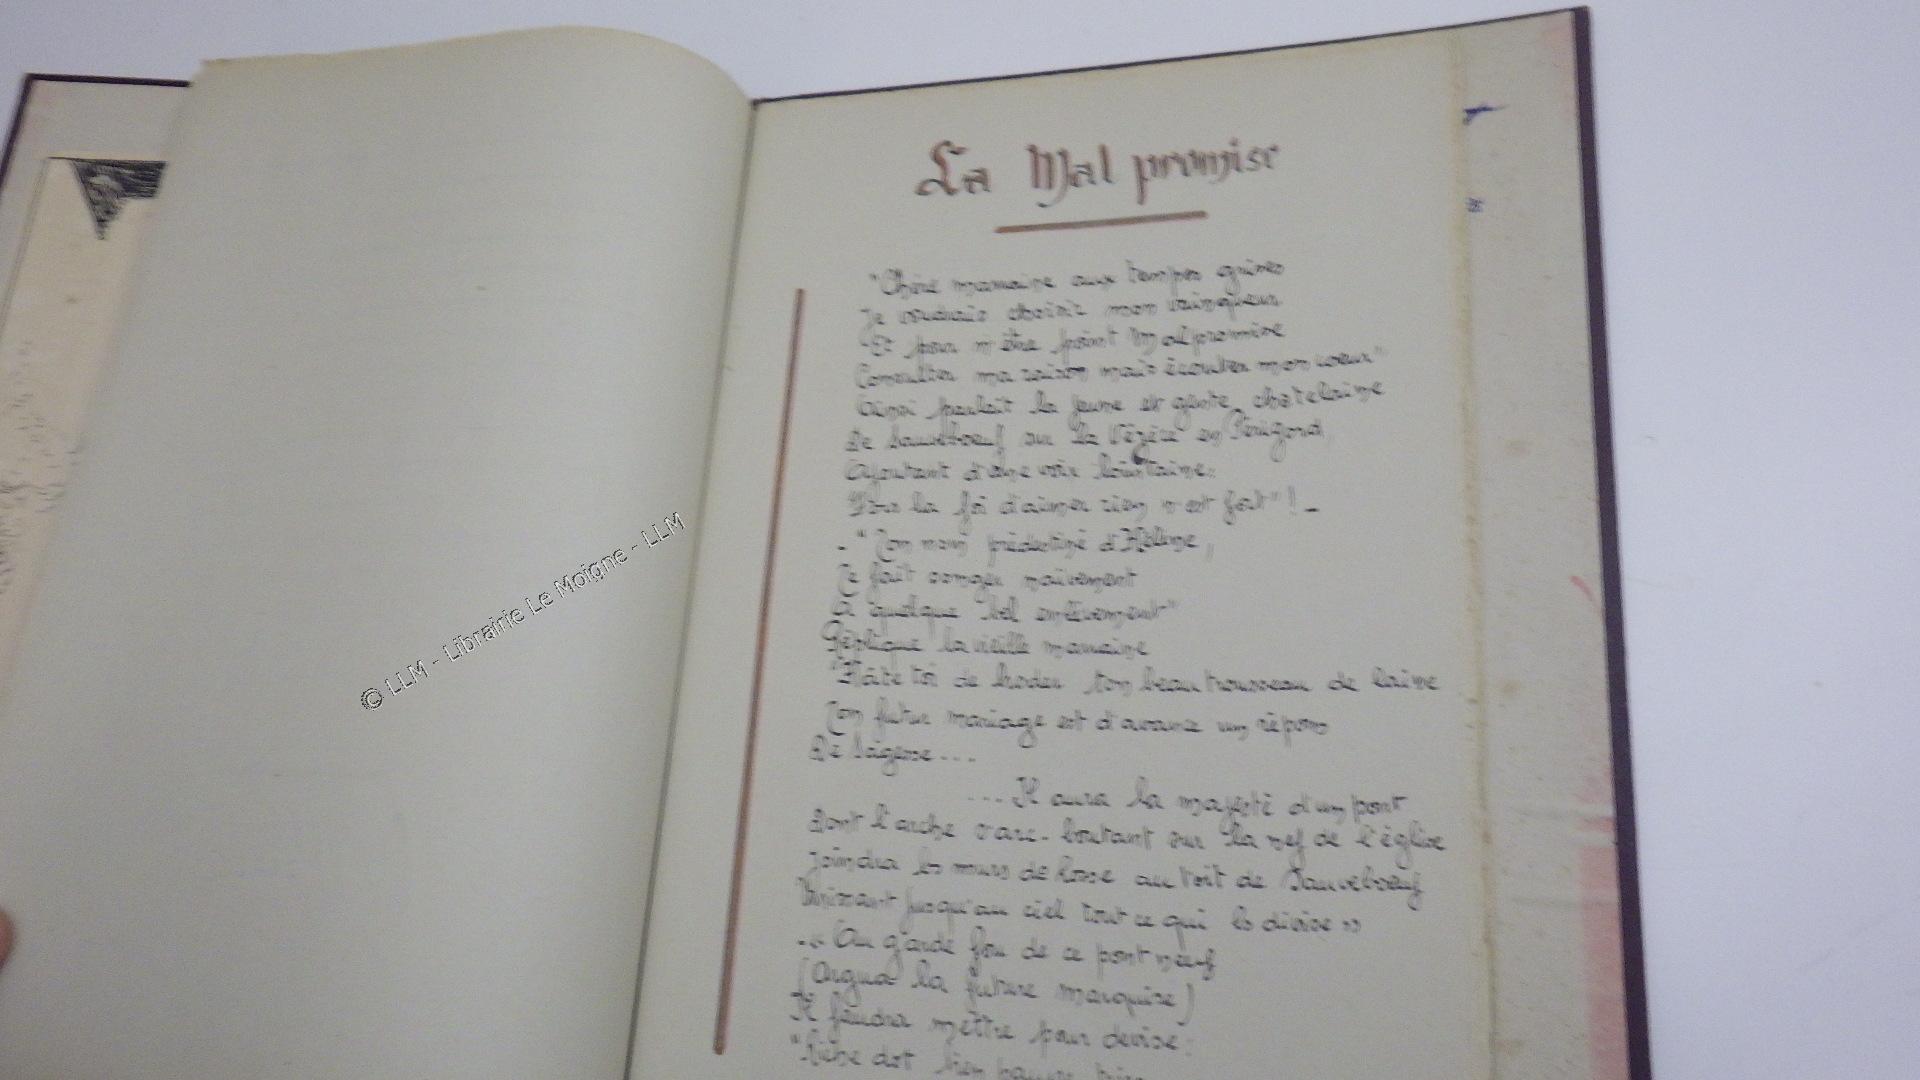 La Mal promise
"Chère marraine aux tempes grises
Je voudrais choisir mon vainqueur
Et pour n'être point Malpromise
Consulter ma raison mais écouter mon coeur"
Ainsi parlait la jeune et gente chatelaine
De Sauveboeuf sur la Vézère en Périgord,
Ajoutant d'une voix lointaine:
"Hors la foi d'aimer rien n'est fort"! -
- "Ton nom prédestiné d'Hélène,
Te fait songer naïvement
A quelque bel enlèvement"
Réplique la vieille marraine
"Hâte toi de broder ton beau trousseau de laine
Ton futur mariage est d'avance un répons
De Sagesse...
... Il aura la majesté d'un pont
Dont l'arche s'arc-boutant sur la nef de l'église
Joindra les murs de Losse au toit de Sauveboeuf
Unissant jusqu'au ciel tout ce qui les divise"
- "Au garde fou de ce pont neuf
(Argua la future marquise)
Il faudra mettre pour devise:
"Riche dot bien pauvre
© LLM - Librairie Le Moigne - LLM